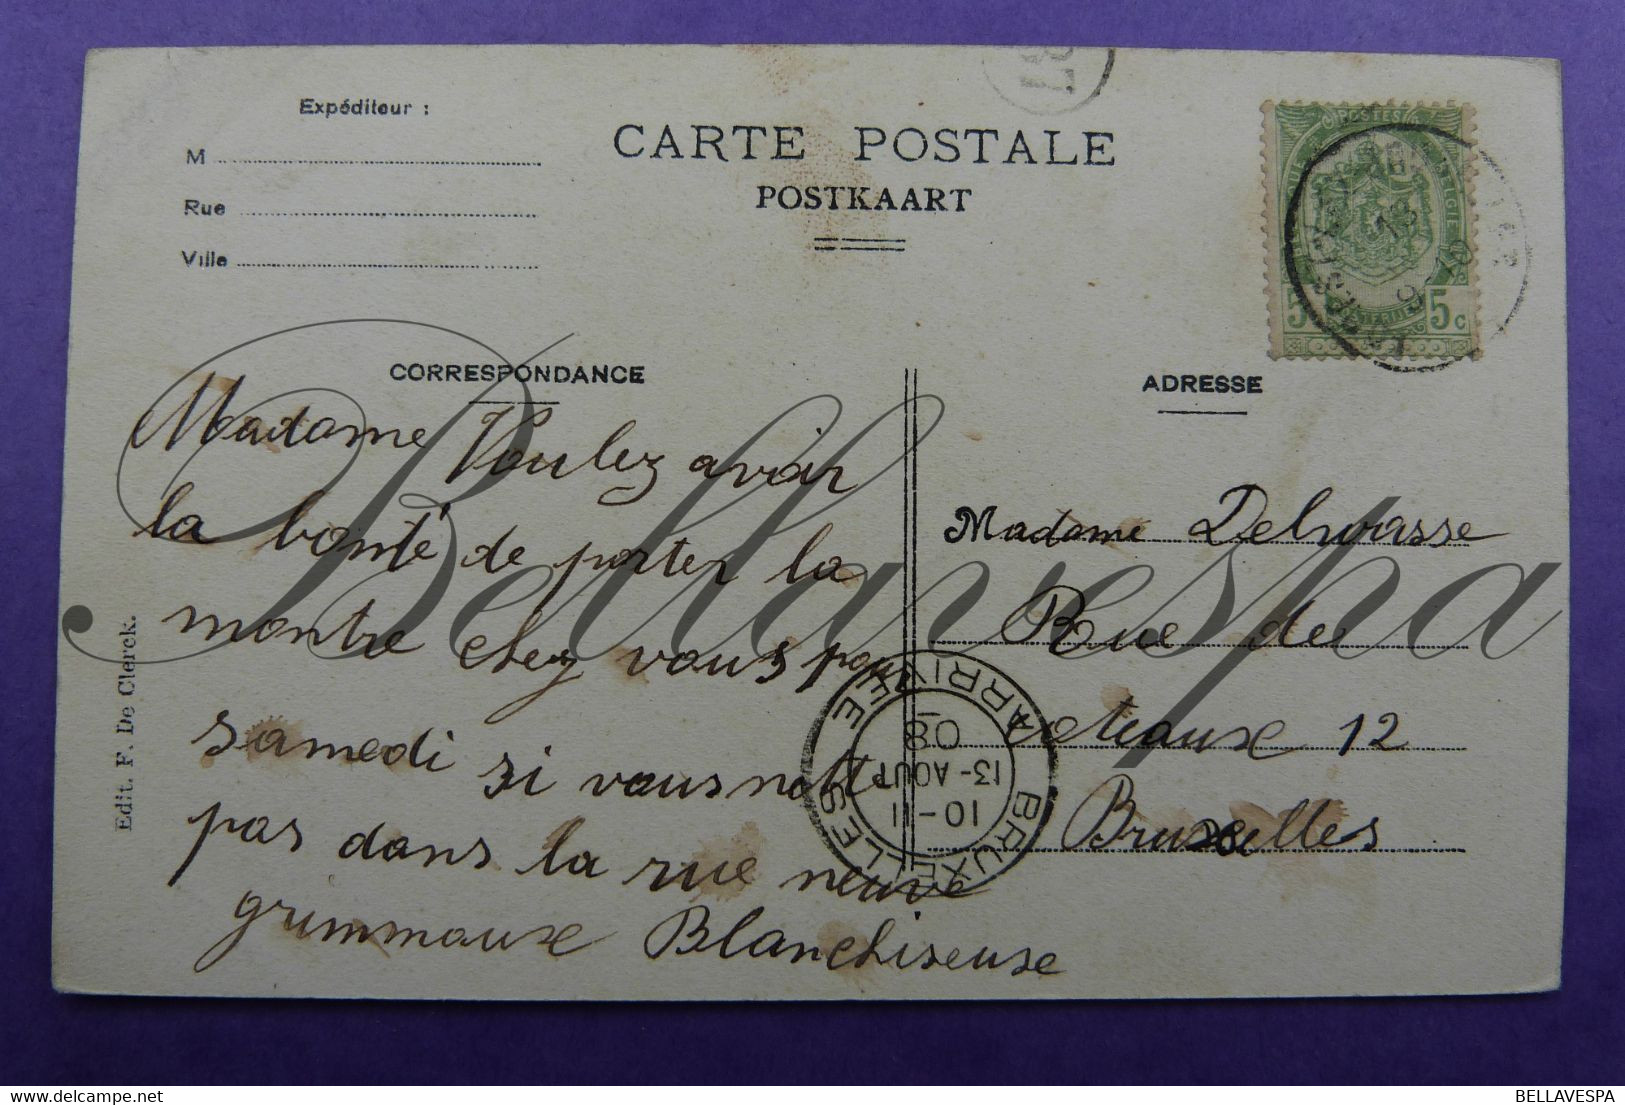 Expéditeur :
M
Rue
Ville
CARTE POSTALE
POSTKAART
POSTES
BELGIE
5 5c
CORRESPONDANCE
ADRESSE
Madame Voulez avoir
la bonté de porter la
montre chez vous pour
samedi si vous
pas dans la rue neuve
grimmouxe Blanchiseuse
Madame Delwasse
Rue des
12
Bruxelles
BRUXELLES ARRIVÉE
10-11
13-AOUT
08
Edit. F. De Clerck.
Bellavespa
BELLAVESPA